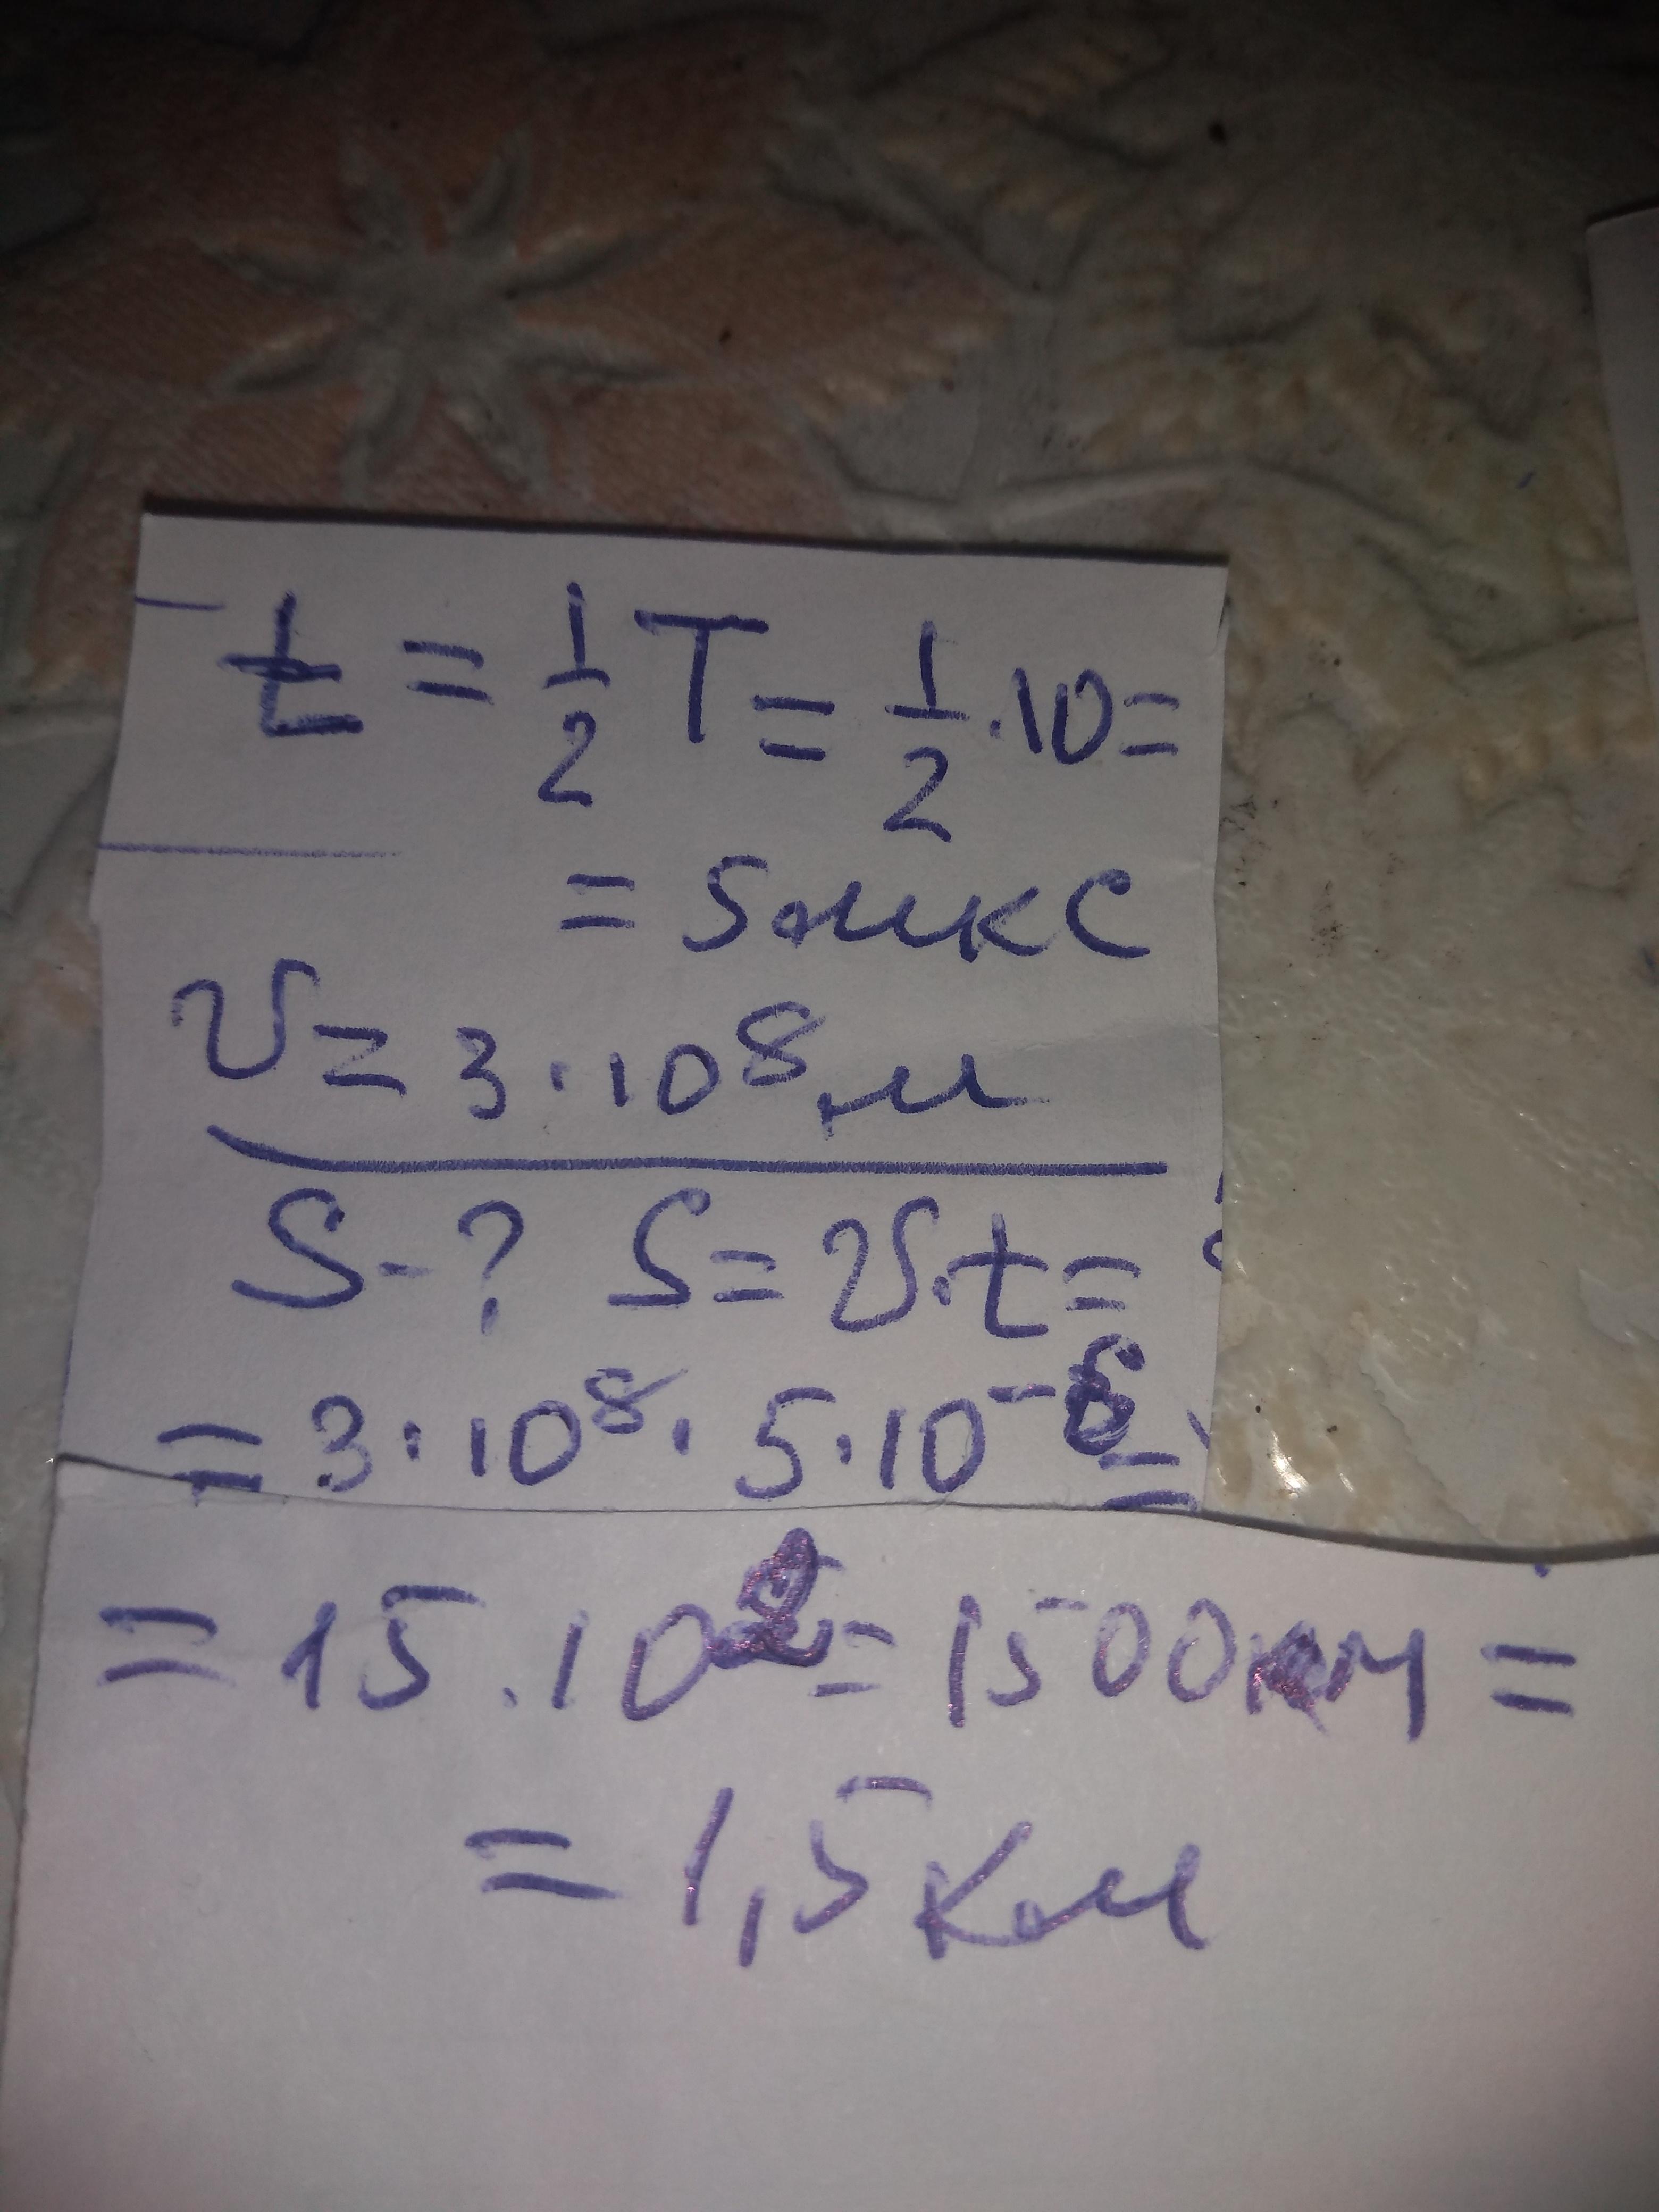 t = 1/2 T = 1/2 · 10 =
= 5 мкс
v = 3 · 10⁸ м
S - ? S = v · t =
= 3 · 10⁸ · 5 · 10⁻⁶ =
= 15 · 10² = 1500 м =
= 1,5 км